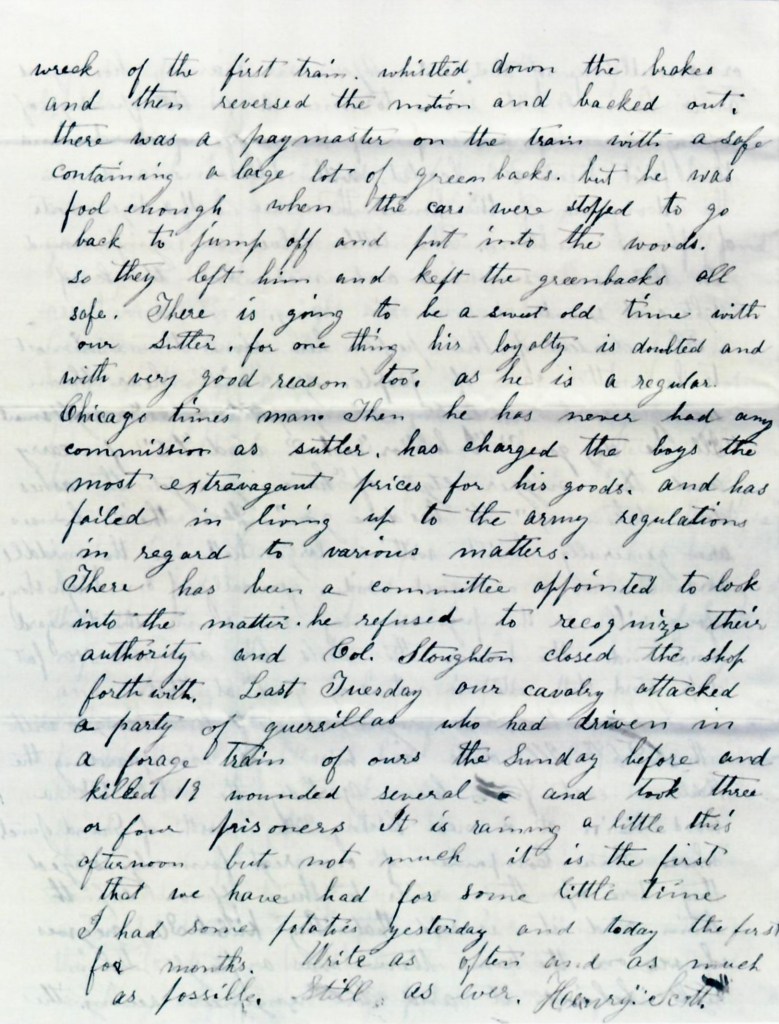 wreck of the first train. whistled down the brakes
and then reversed the motion and backed out.
there was a paymaster on the train with a safe
containing a large lot of greenbacks. but he was
fool enough when the cars were stopped to go
back to jump off and put into the woods.
so they left him and kept the greenbacks all
safe. There is going to be a sweet old time with
our sutler. for one thing his loyalty is doubted and
with very good reason too. as he is a regular
Chicago times man. Then he has never had any
commission as sutler. has charged the boys the
most extravagant prices for his goods. and has
failed in living up to the army regulations
in regard to various matters.
There has been a committee appointed to look
into the matter. he refused to recognize their
authority and Col. Stoughton closed the shop
forthwith. Last Tuesday our cavalry attacked
a party of guerrillas who had driven in
a forage train of ours the Sunday before and
killed 19 wounded several and took three
or four prisoners It is raining a little this
afternoon but not much it is the first
that we have had for some little time
I had some potatoes yesterday and today the first
for months. Write as often and as much
as possible. Still, as ever. Henry Scott.